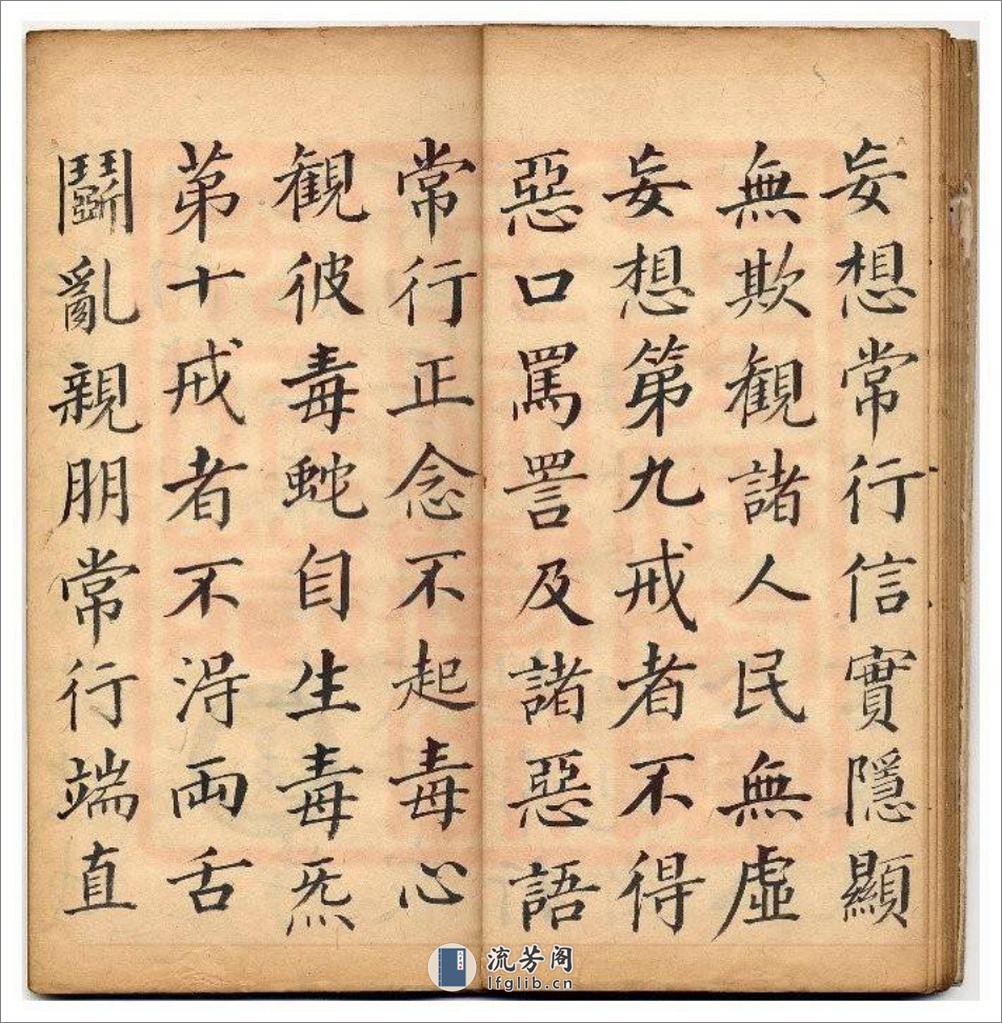 妄想常行信實隱顯
無欺觀諸人民無虛
妄想第九戒者不得
惡口罵詈及諸惡語
常行正念不起毒心
觀彼毒蛇自生毒炁
苐十戒者不淂両舌
鬬亂親朋常行端直
流芳阁
lfglib.cn